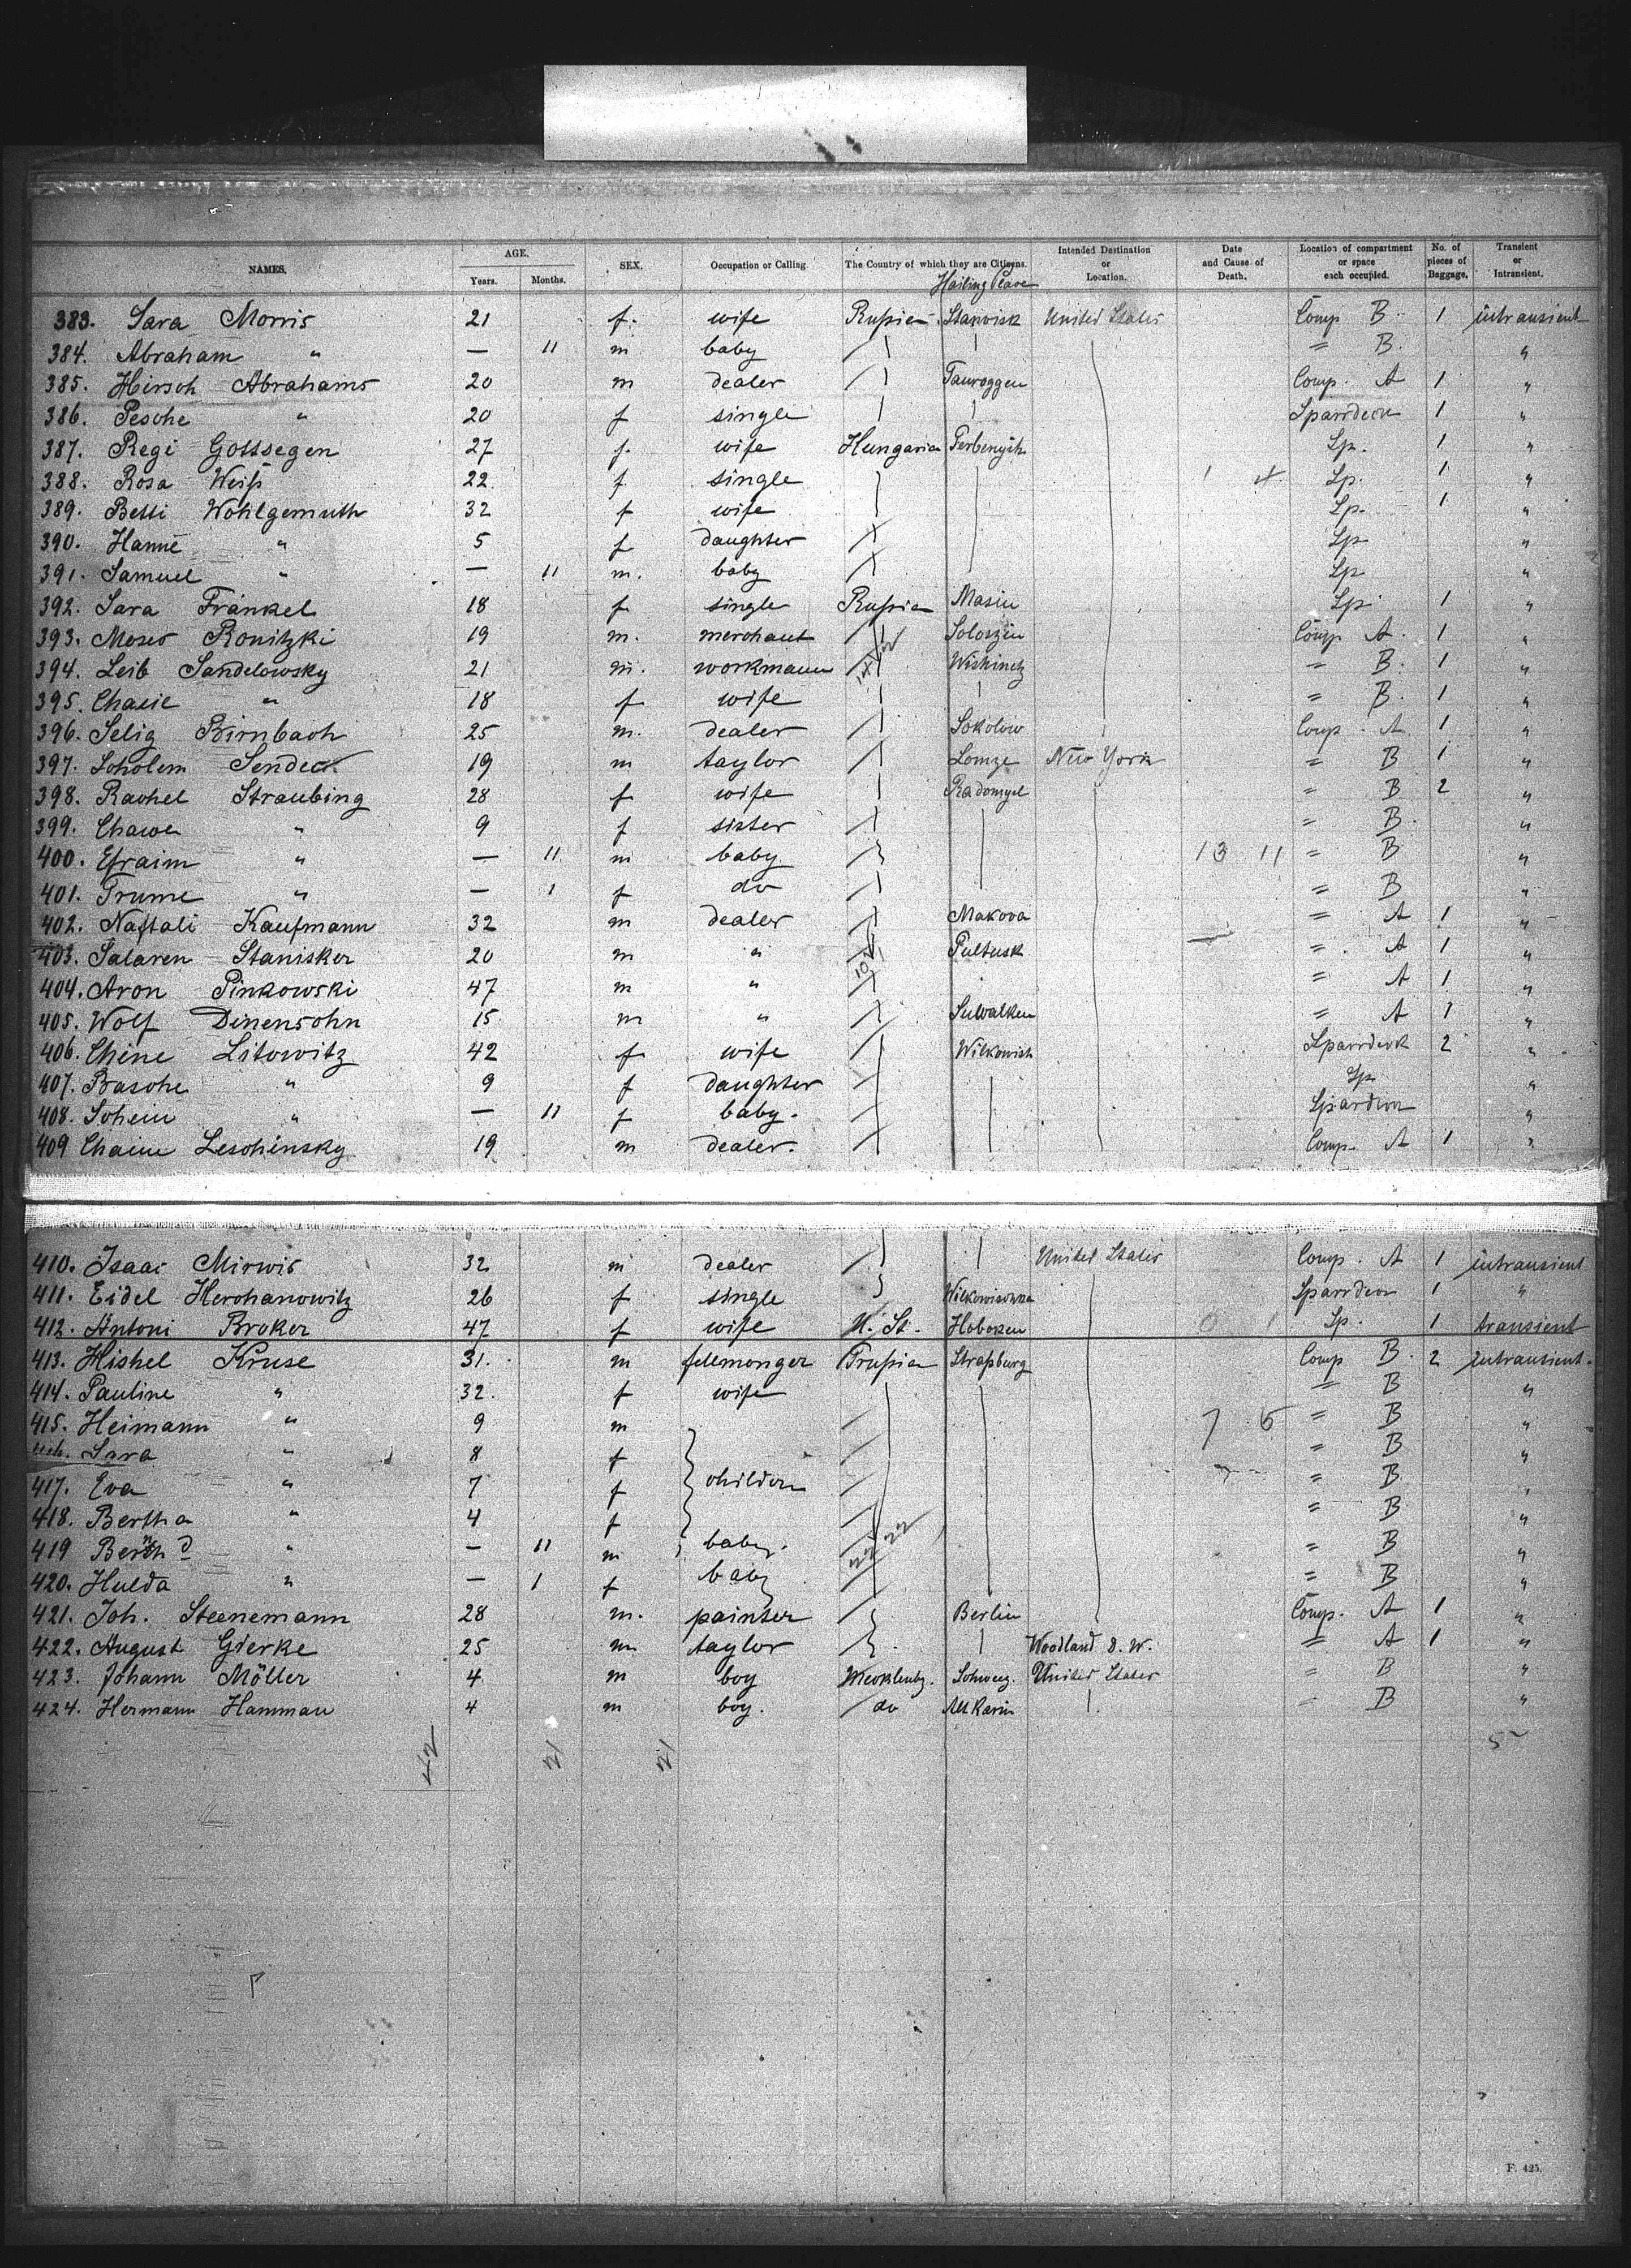 NAMES. AGE. Years. Months. SEX. Occupation or Calling. The Country of which they are Citizens. Hailing Place Intended Destination or Location. Date and Cause of Death. Location of compartment or space each occupied. No. of pieces of Baggage. Transient or Intransient.
383. Sara Morris 21 f. wife Russia Stawisk United States Comp B. 1 intransient
384. Abraham " — 11 m baby = B. "
385. Hirsch Abrahams 20 m dealer Tauroggen Comp. A 1 "
386. Pesche " 20 f single Sparrdeck 1 "
387. Regi Gottsegen 27 f. wife Hungaria Sp. 1 "
388. Rosa Weiß 22 f single Sp. 1 "
389. Betti Wohlgemuth 32 f wife Sp. 1 "
390. Hanne " 5 f daughter Sp "
391. Samuel " — 11 m. baby Sp "
392. Sara Fränkel 18 f single Russia Sp. 1 "
393. Moses Ronitzki 19 m. merchant Comp A. 1 "
394. Leib Sandelowsky 21 m. workmann Wishinetz = B. 1 "
395. Chaie " 18 f wife = B. 1 "
396. Selig Birnbach 25 m. dealer Sokolow Comp. A 1 "
397. Scholem Sendeck 19 m taylor Lomze New York = B 1 "
398. Rachel Straubing 28 f wife Radomysl = B 2 "
399. Chawe " 9 f sister = B. "
400. Efraim " — 11 m baby 13 11 = B "
401. Frume " — 1 f do = B "
402. Naftali Kaufmann 32 m dealer Makowa = A 1 "
403. Salaren Stanisker 20 m " Pultusk = A 1 "
404. Aron Pinkowski 47 m " = A 1 "
405. Wolf Dinensohn 15 m " Suwalken = A 1 "
406. Chine Litowitz 42 f wife Wilkowisch Sparrdeck 2 "
407. Basche " 9 f daughter Sp. "
408. Schein " — 11 f baby. Spardeck "
409 Chaim Leschinsky 19 m dealer. Comp. A 1 "
410. Isaac Mirwis 32 m dealer United States Comp. A 1 intransient
411. Eidel Herchanowitz 26 f single Sparrdeck 1 "
412. Antoni Broker 47 f wife U. St. Hoboken Sp. 1 transient
413. Hishel Kruse 31. m fellmonger Prussia Strassburg Comp B. 2 intransient.
414. Pauline " 32. f wife = B "
415. Heimann " 9 m 7 5 = B "
416. Sara " 8 f = B "
417. Eva " 7 f children = B "
418. Bertha " 4 f = B "
419 " — 11 m baby. = B "
420. Hulda " — 1 f baby = B "
421. Joh. Steenemann 28 m. painter Berlin Comp. A 1 "
422. August Gierke 25 m taylor Woodland = A 1 "
423. Johann Möller 4 m boy Mecklenbg. Schwerg. United States = B "
424. Hermann Hamman 4 m boy. do Alt Karin = B "
42 21 21
F. 425.